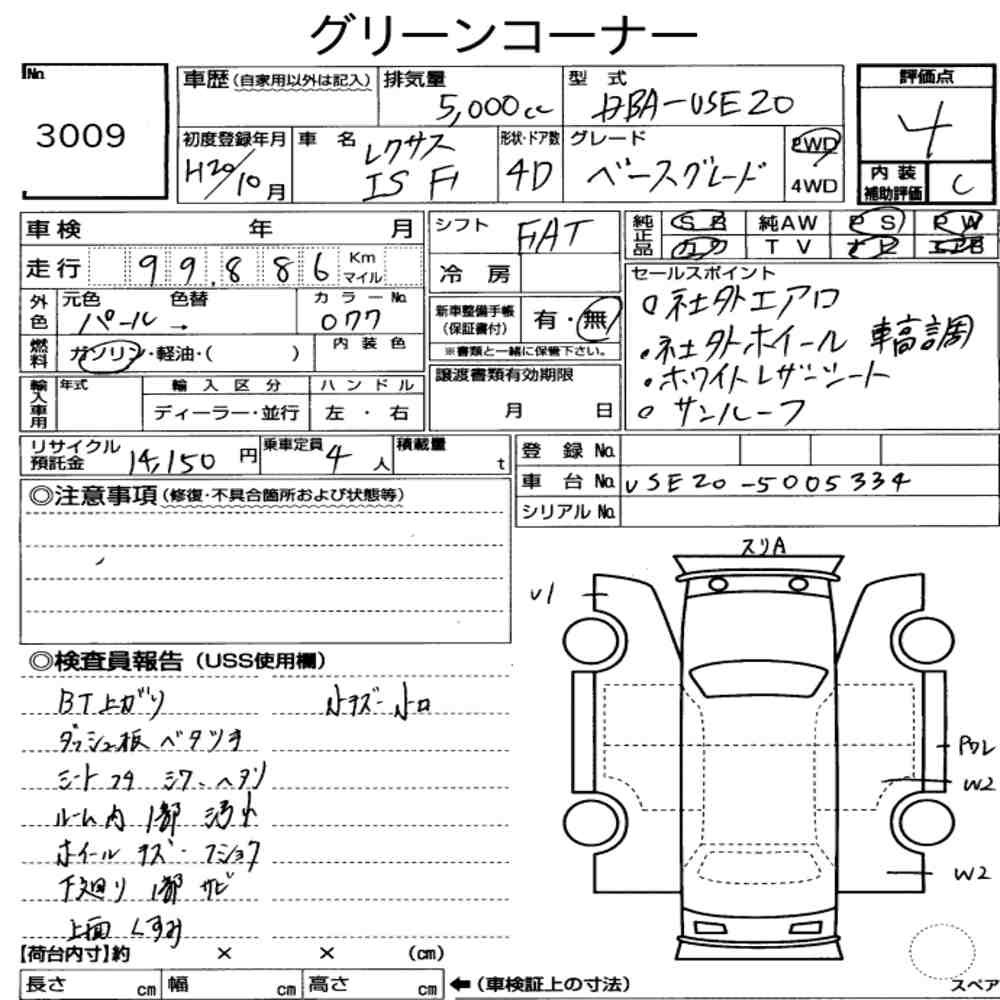 グリーンコーナー
No.
3009
車歴(自家用以外は記入)
排気量
5,000cc
型 式
DBA-USE20
評価点
4
初度登録年月
H20/10月
車 名
レクサス
IS F
形状・ドア数
4D
グレード
ベースグレード
2WD
4WD
内装
補助評価
C
車検 年 月
シフト
FAT
純正品
SR 純AW PS PW
カワ TV ナビ エアB
走行 99,886 Km マイル
冷房
セールスポイント
社外エアロ
・社外ホイール 車高調
・ホワイトレザーシート
サンルーフ
外色
元色 色替
パール→
カラーNo.
077
新車整備手帳
(保証書付)
有・無
※書類と一緒に保管下さい。
燃料
ガソリン・軽油・( )
内装色
譲渡書類有効期限
月 日
輸入車用
年式
輸入区分
ディーラー・並行
ハンドル
左・右
リサイクル
預託金
14,150円
乗車定員
4人
積載量
t
登録No.
車台No. USE20-5005334
シリアルNo.
◎注意事項(修復・不具合箇所および状態等)
スリA
U1
◎検査員報告(USS使用欄)
BT上ガリ
小キズ・小凹
ダッシュ板ベタツキ
シートフチ シワ、ヘタリ
Pワレ
W2
ルーム内1部汚れ
ホイールキズ・フショク
下廻り1部サビ
W2
上面くすみ
【荷台内寸】約 × × (cm)
長さ cm 幅 cm 高さ cm
←(車検証上の寸法)
スペア